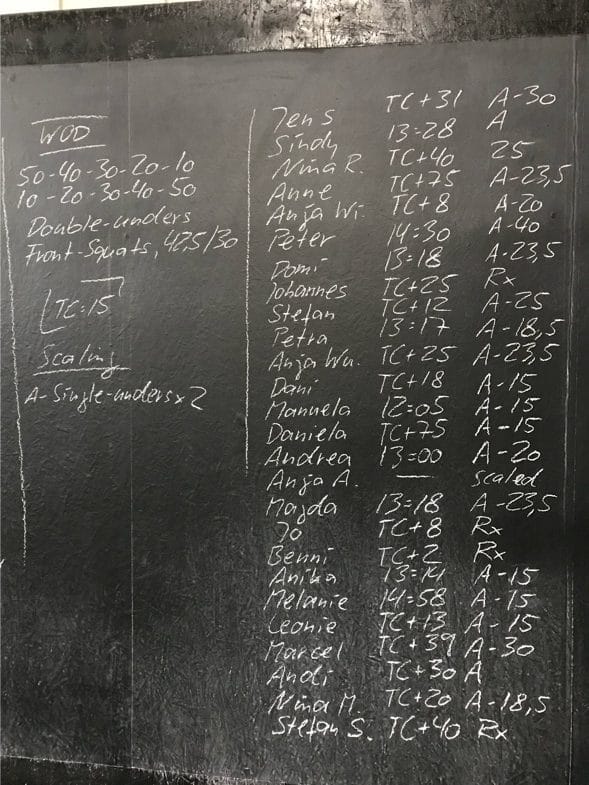 WOD
50-40-30-20-10
10-20-30-40-50
Double-unders
Front-Squats, 42,5/30
TC:15
Scaling
A-Single-unders x 2
Jens TC+31 A-30
Sindy 13:28 A
Nina R. TC+40 25
Anne TC+75 A-23,5
Anja Wi. TC+8 A-20
Peter 14:30 A-40
Domi 13:18 A-23,5
Johannes TC+25 Rx
Stefan TC+12 A-25
Petra 13:17 A-18,5
Anja Wu. TC+25 A-23,5
Dani TC+18 A-15
Manuela 12:05 A-15
Daniela TC+75 A-15
Andrea 13:00 A-20
Anja A. — scaled
Magda 13:18 A-23,5
Jo TC+8 Rx
Benni TC+2 Rx
Anika 13:14 A-15
Melanie 14:58 A-15
Leonie TC+13 A-15
Marcel TC+39 A-30
Andi TC+30 A
Nina M. TC+20 A-18,5
Stefan S. TC+40 Rx